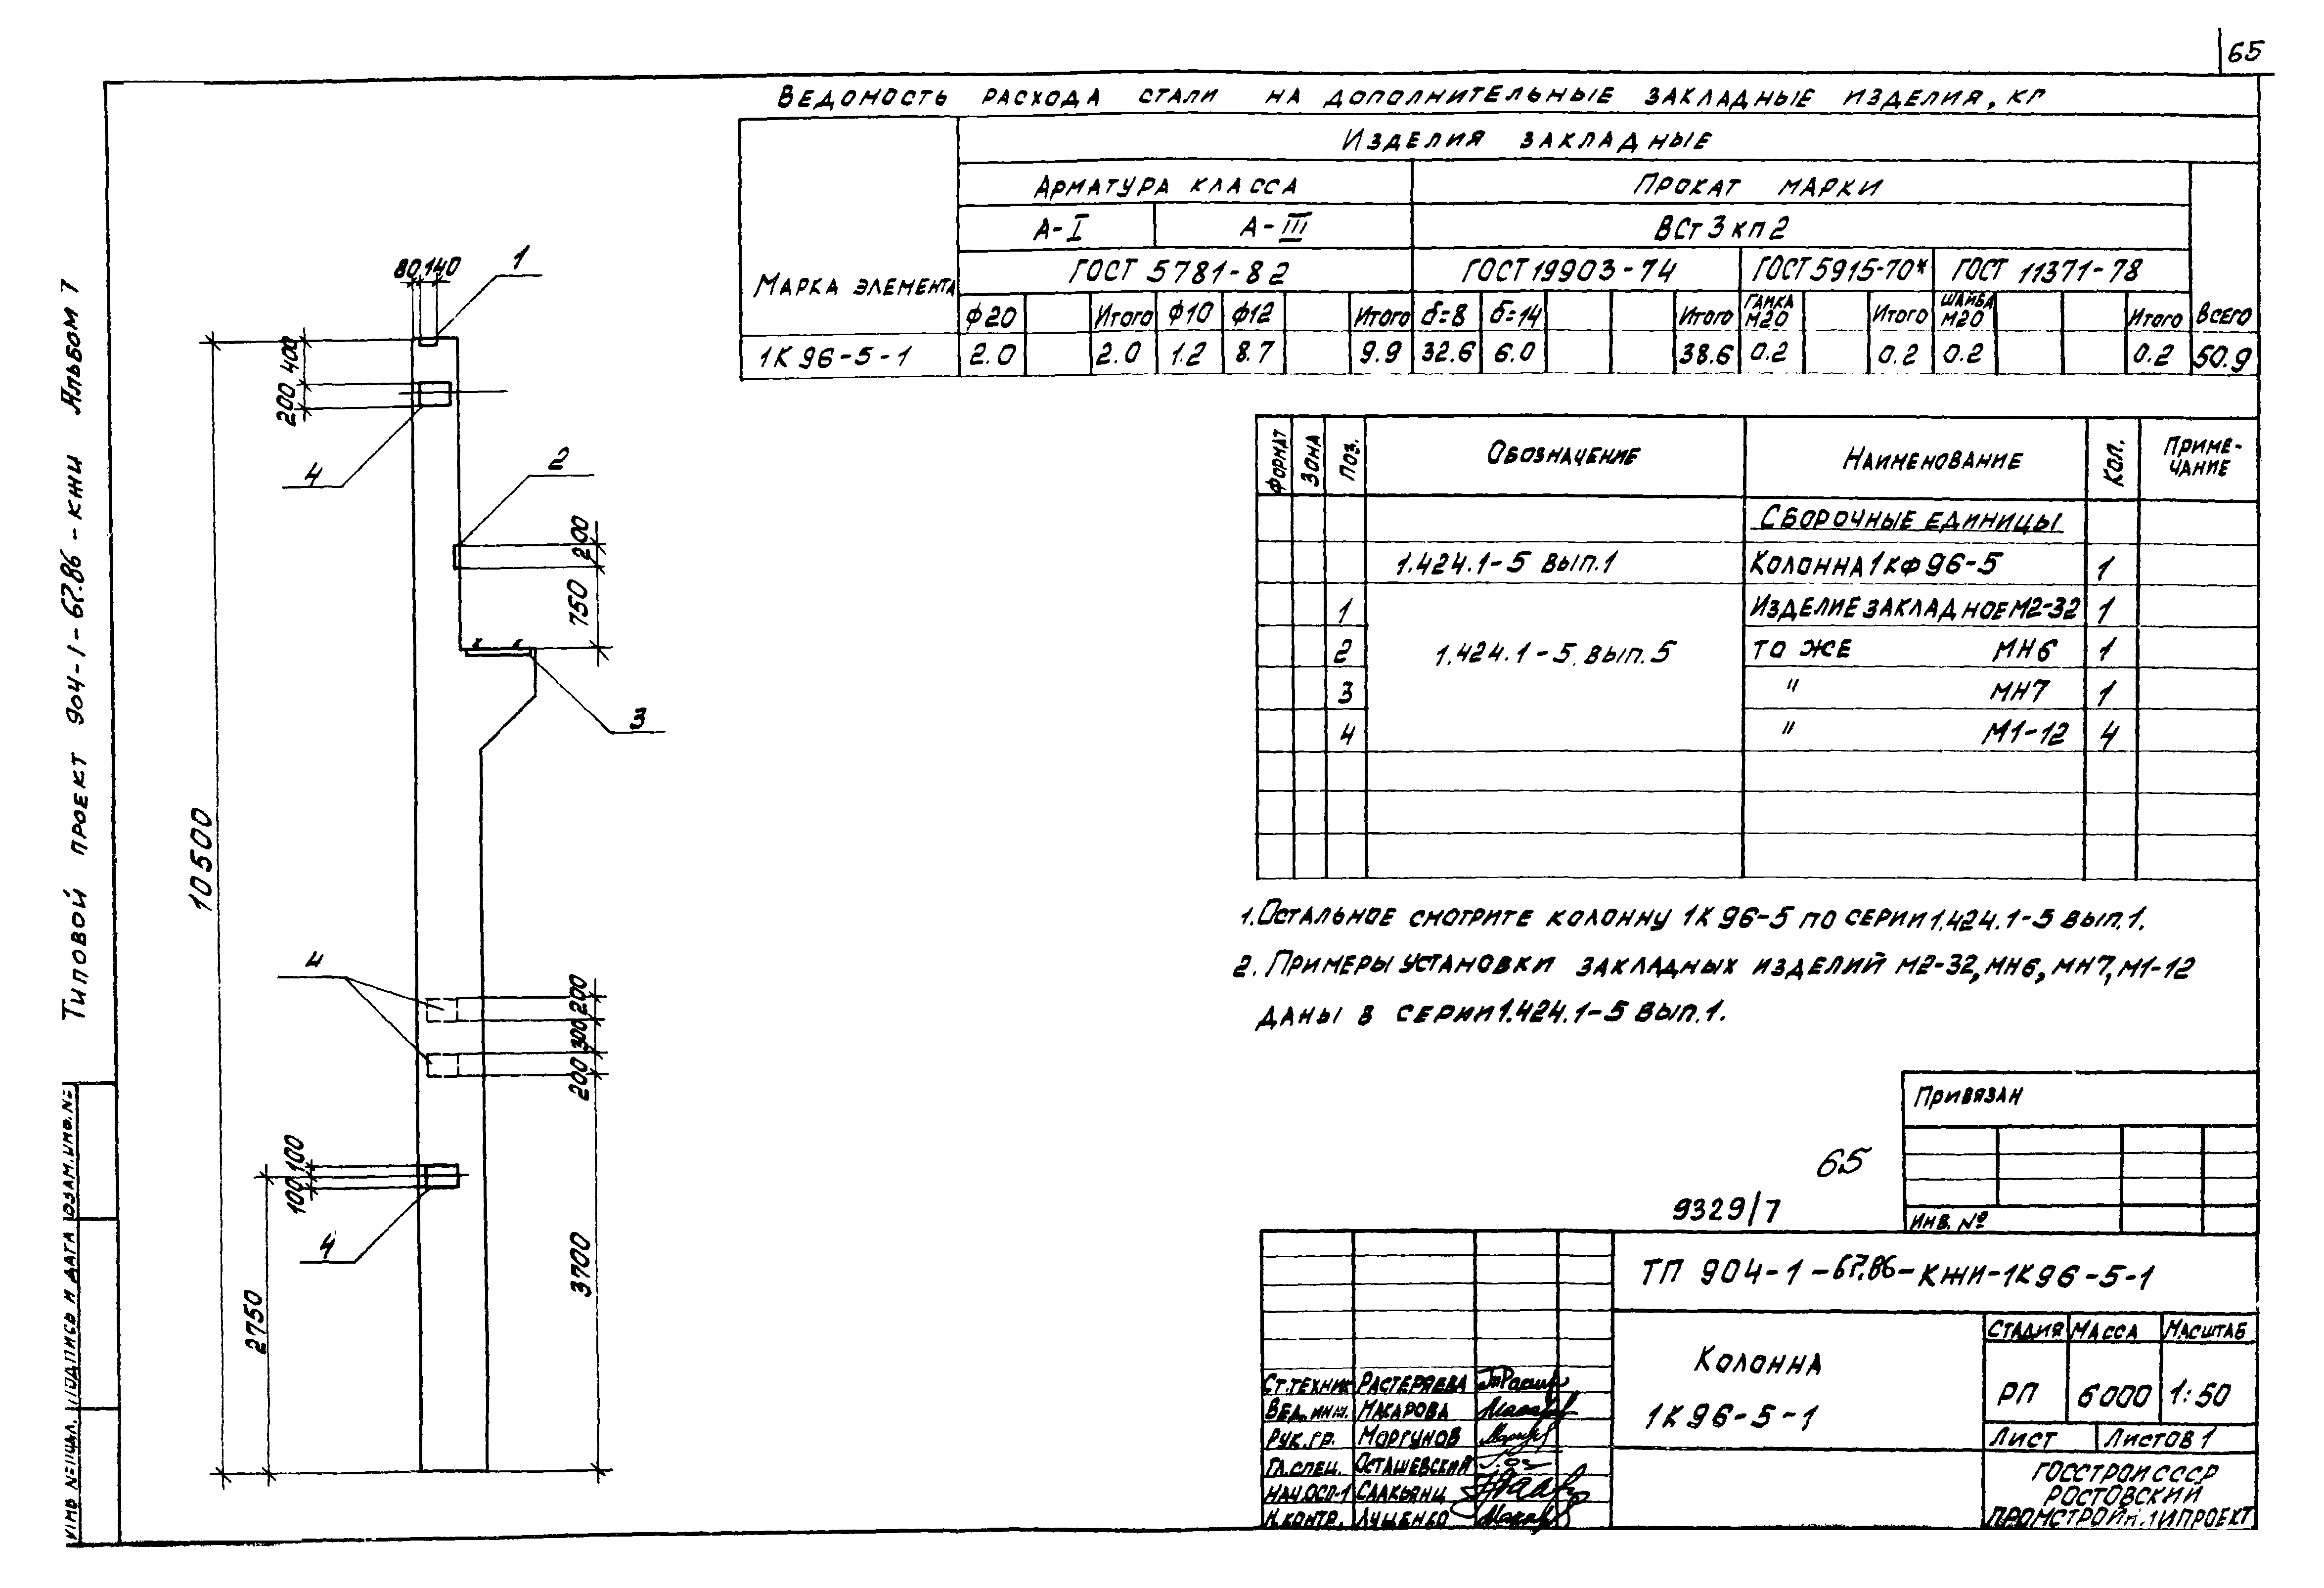 65
Ведомость расхода стали на дополнительные закладные изделия, кг
Марка элемента
Изделия закладные
Арматура класса
Прокат марки
Всего
А-I
А-III
ВСт3кп2
ГОСТ 5781-82
ГОСТ 19903-74
ГОСТ 5915-70*
ГОСТ 11371-78
ф20 Итого ф10 ф12 Итого б=8 б=14 Итого Гайка М20 Итого Шайба М20 Итого
1К96-5-1 2.0 2.0 1.2 8.7 9.9 32.6 6.0 38.6 0.2 0.2 0.2 0.2 50.9
Формат Зона Поз. Обозначение Наименование Кол. Примечание
Сборочные единицы
1.424.1-5 вып.1 Колонна 1КФ96-5 1
1 Изделие закладное М2-32 1
2 1.424.1-5. вып.5 то же МН6 1
3 " МН7 1
4 " М1-12 4
1. Остальное смотрите колонну 1К96-5 по серии 1.424.1-5 вып.1.
2. Примеры установки закладных изделий М2-32, МН6, МН7, М1-12
даны в серии 1.424.1-5 вып.1.
80 140
1
400
200
4
2
200
750
3
10500
4
200
300
200
100
100
4
2750
3700
Типовой проект 904-1-67.86-КЖИ Альбом 7
Взам. инв. №
Подпись и дата
Инв № подл.
Привязан
Инв. №
65
9329/7
ТП 904-1-67.86-КЖИ-1К96-5-1
Колонна
1К96-5-1
Стадия Масса Масштаб
РП 6000 1:50
Лист Листов 1
Госстрой СССР
Ростовский
Промстройниипроект
Ст.техник Растеряева
Вед. инж. Макарова
Рук.гр. Моргунов
Гл.спец. Осташевский
Нач.ОСП-1 Саакьянц
Н.контр. Луценко